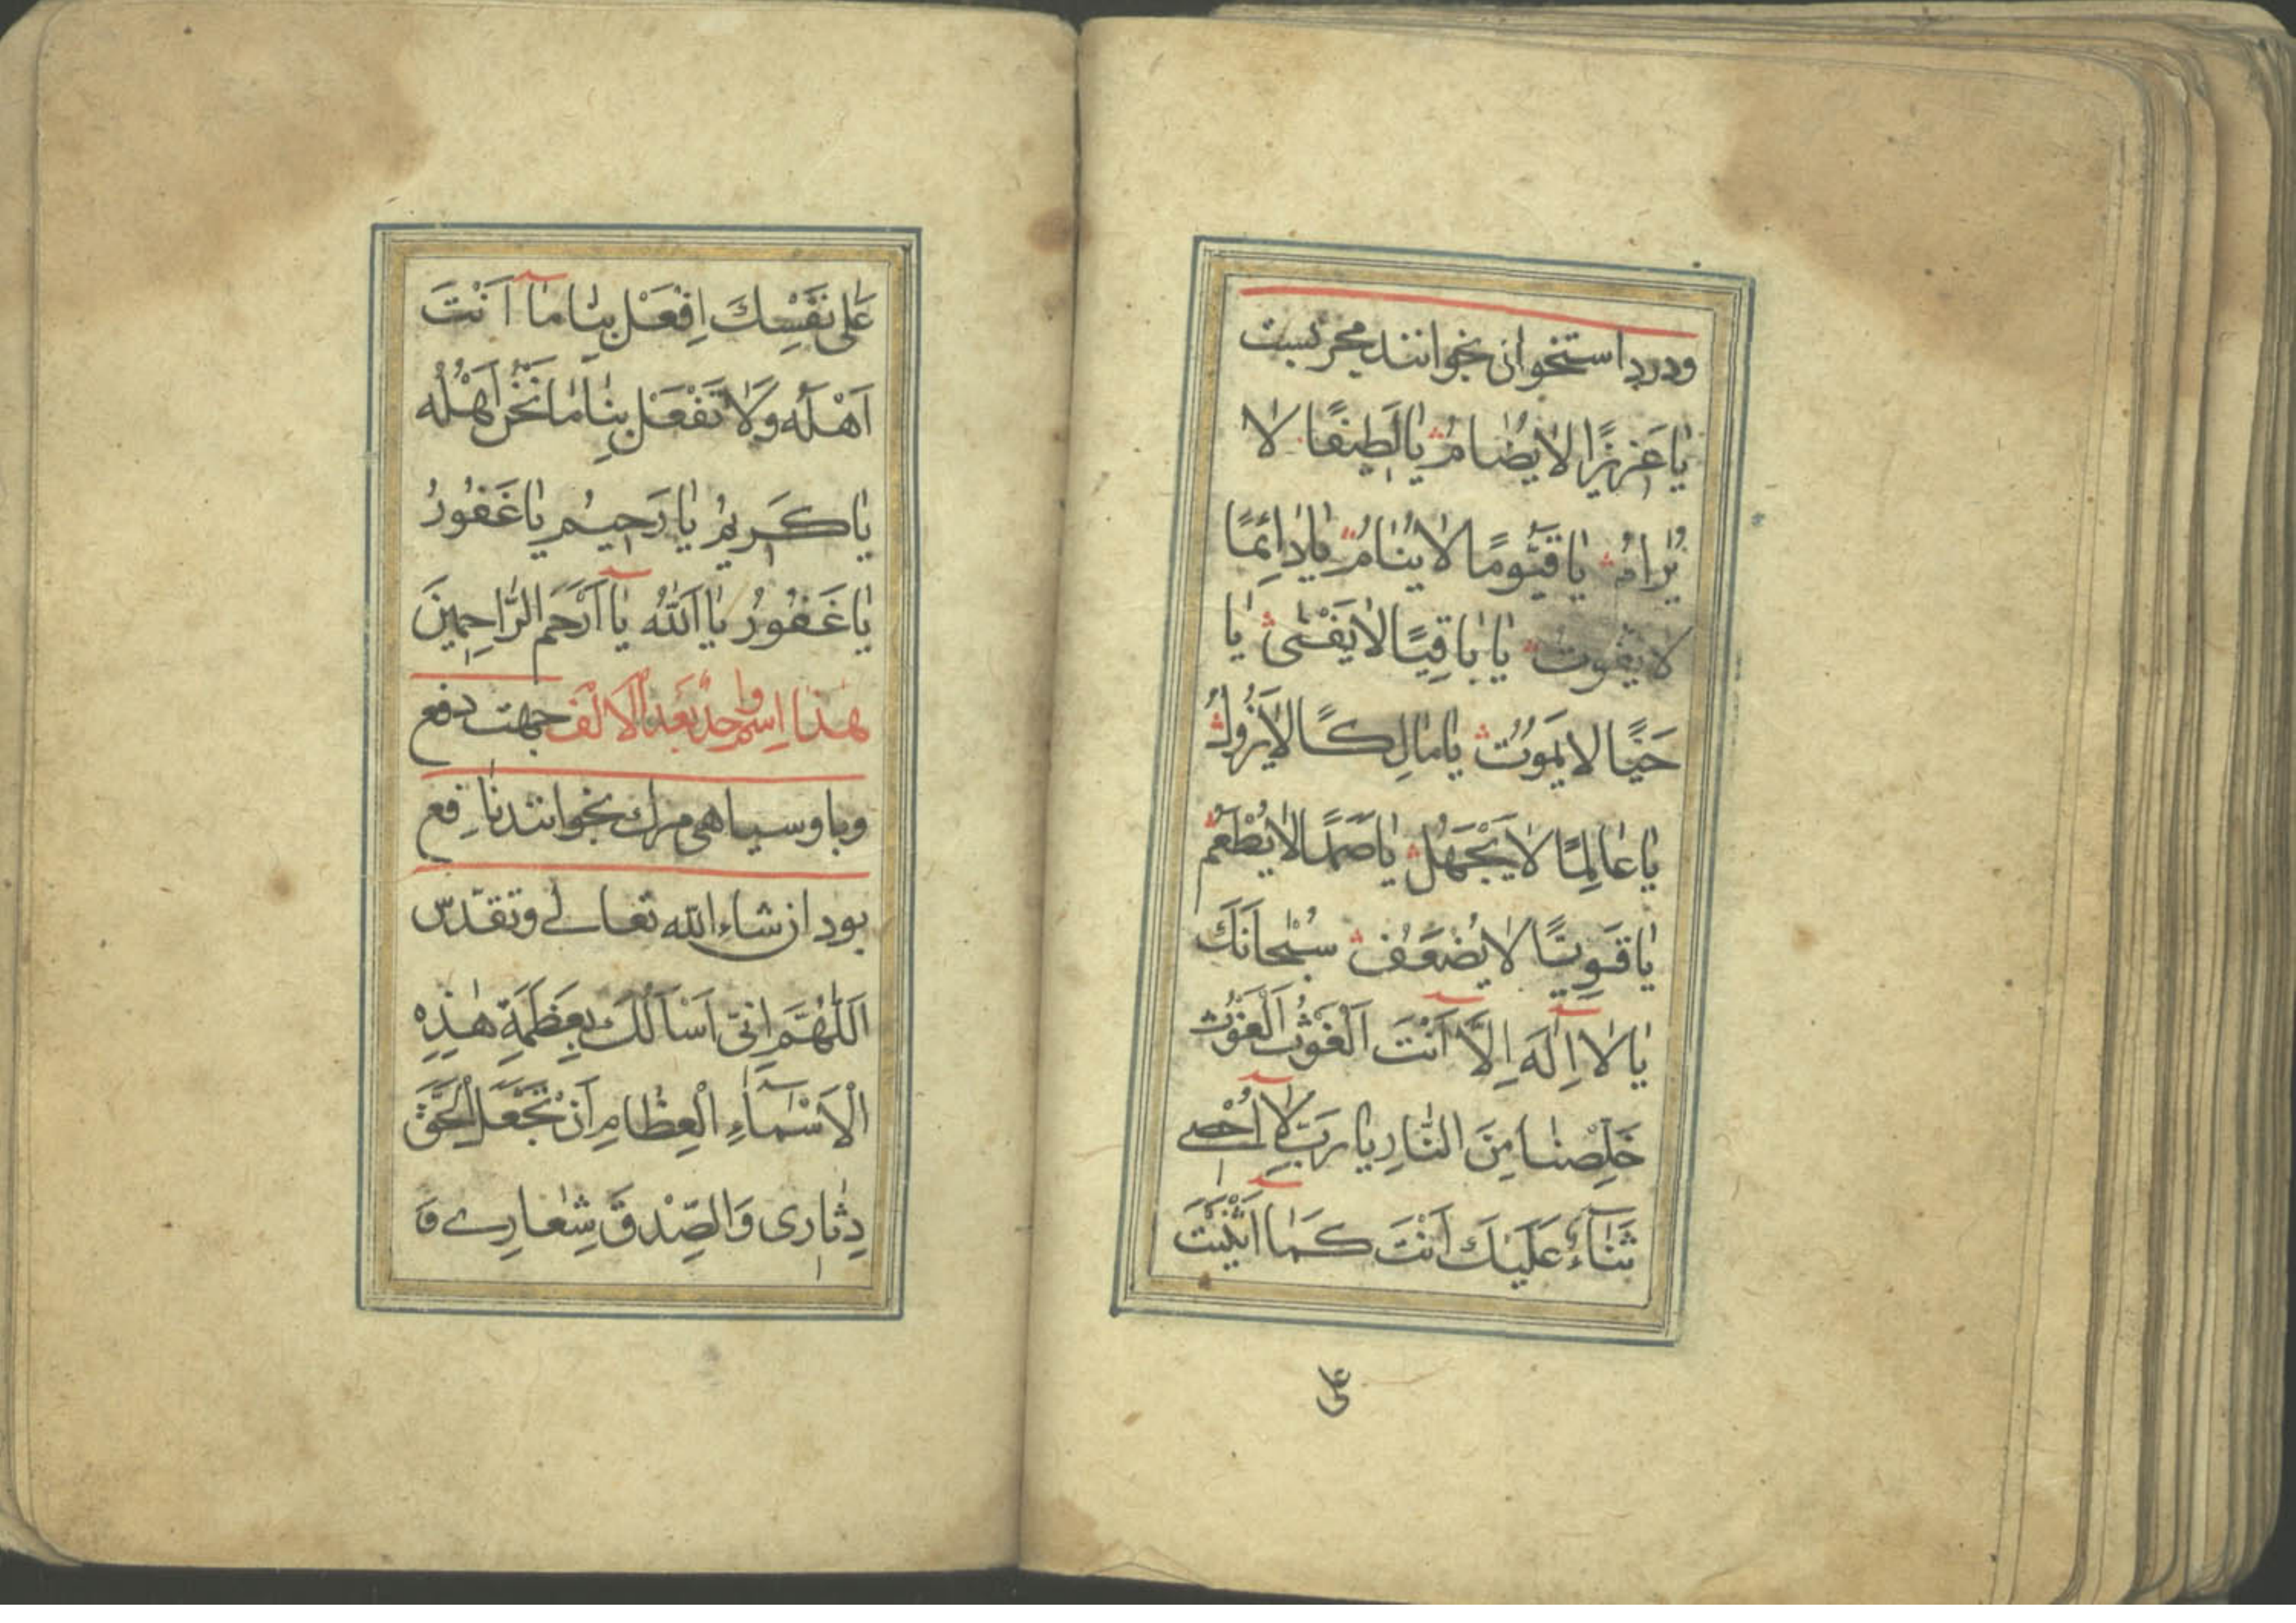 ودرد استخوان بخوانند مجربست
يٰا عَزيزًا لا يُضٰامُ يٰا لَطيفًا لا
يُرٰامُ يٰا قَيُّومًا لا يَنٰامُ يٰا دٰائِمًا
لا يفُوت يٰا بٰاقِيًا لا يَفْنىٰ يٰا
حَيًّا لا يَموُتُ يٰا مٰالِكًا لا يَزُولُ
يٰا عٰالِمًا لا يَجْهَلُ يٰا صَمَدًا لا يُطْعَمُ
يٰا قَوِيًّا لا يُضعَفُ سُبْحانَكَ
يٰا لا اِلٰهَ اِلّا اَنْتَ اَلْغَوْثُ اَلْغَوْثُ
خَلِّصْنٰا مِنَ النّٰارِ يا رَبِّ لا اُحْصي
ثَنٰاءً عَلَيْكَ اَنْتَ كَمٰا اَثْنَيْتَ
على
عَلىٰ نَفْسِكَ اِفْعَلْ بِنٰا مٰا اَنْتَ
اَهْلُه وَلا تَفْعَلْ بِنٰا مٰا نَحْنُ اَهْلُه
يٰا كَريمُ يٰا رَحيمُ يٰا غَفُورُ
يٰا غَفُورُ يٰا اَللّٰهُ يٰا اَرْحَمَ الرّٰاحِمينَ
هٰذا اِسم واحدٌ بَعدَ الاَلف جهت دفع
وبا وسياهى مرك بخوانند نٰافع
بود ان شاء الله تعالى وتقدّس
اَللّٰهُمَّ اِنّى اَسْاَلُكَ بِعَظَمَةِ هٰذِهِ
الْاَسْمٰاءِ الْعِظٰامِ اَنْ تَجْعَلَ الْحَقَّ
دِثٰارى وَالصِّدْقَ شِعٰارى وَ